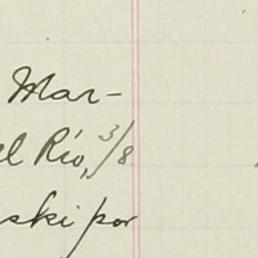 Mar-
el Río, 3/8
ski por